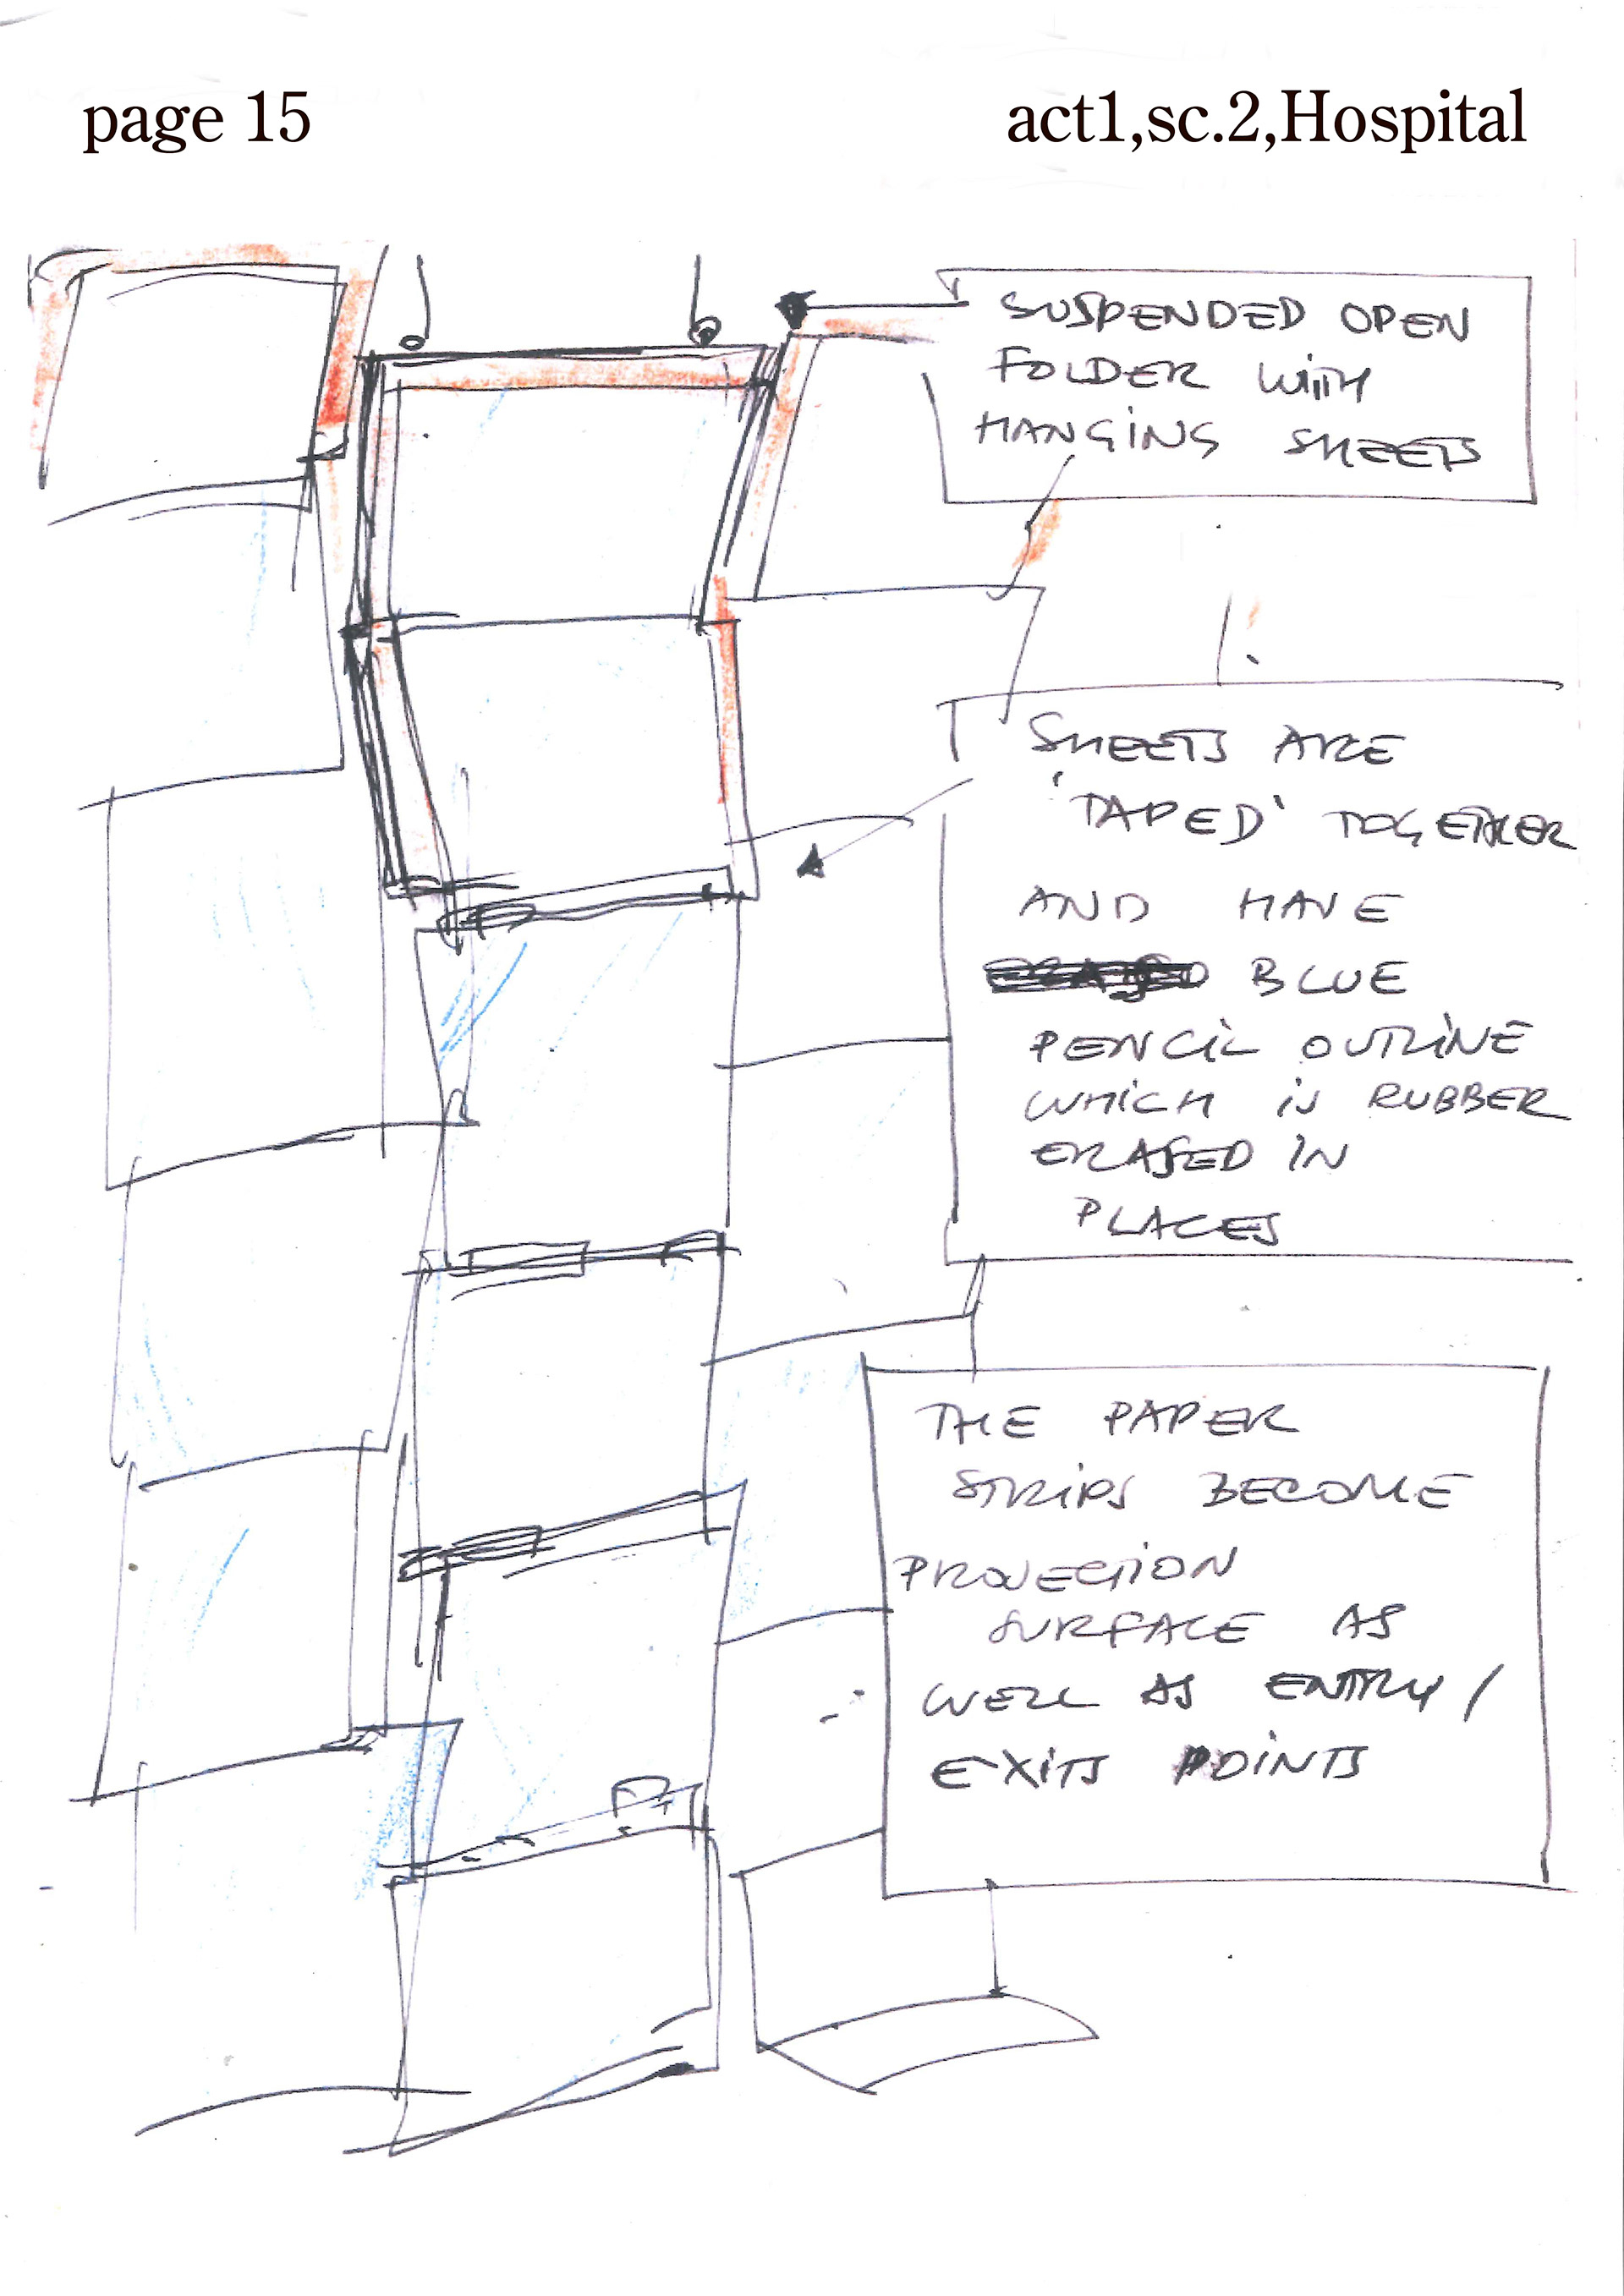 page 15
act1,sc.2,Hospital
SUSPENDED OPEN
FOLDER WITH
HANGING SHEETS
SHEETS ARE
'TAPED' TOGETHER
AND HAVE
BLUE
PENCIL OUTLINE
WHICH IS RUBBER
ERASED IN
PLACES
THE PAPER
STRIPS BECOME
PROJECTION
SURFACE AS
WELL AS ENTRY/
EXITS POINTS